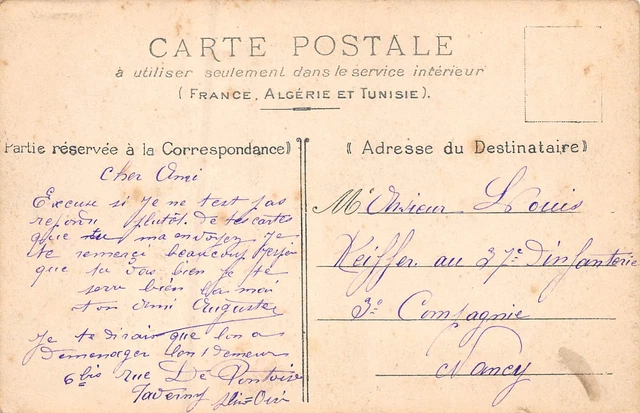 CARTE POSTALE
à utiliser seulement dans le service intérieur
(FRANCE, ALGÉRIE ET TUNISIE).
Partie réservée à la Correspondance)
Cher Ami
Excuse si Je ne test pas
repondu plutôt. De tes cartes
que tu ma envoyer Je
te remerci beaucoup
que tu vas bien Je te
serre bien la mai
ton ami Auguste
Je te dirais que lon a
Demenager Lon Demeur
6 bis rue De Pontoise
Taverny
(Adresse du Destinataire)
Monsieur Louis
Keiffer au 37e Dinfanterie
3e Compagnie
Nancy